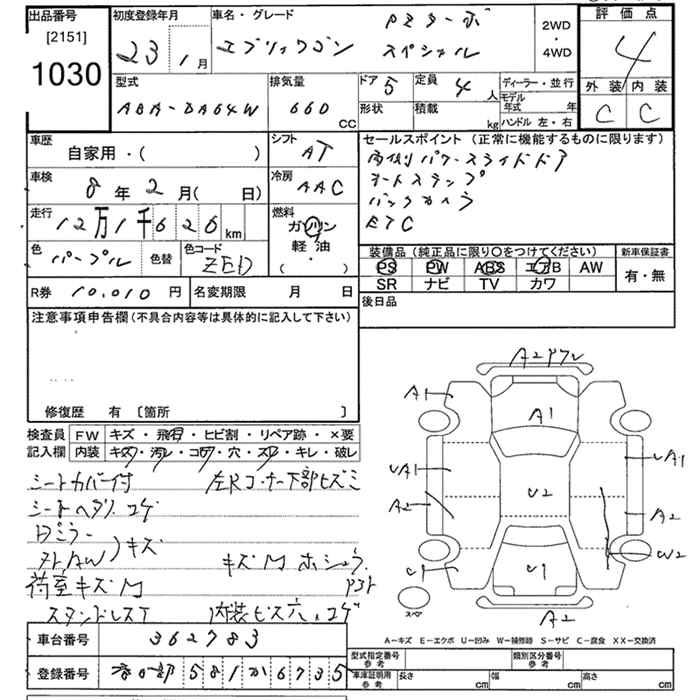 出品番号 [2151] 1030
初度登録年月 23 1月
車名・グレード エブリィワゴン PZターボ スペシャル
2WD・4WD
評価点 4
外装 C 内装 C
型式 ABA-DA64W
排気量 660 CC
ドア 5 定員 4人
形状 積載 kg
ディーラー・並行
モデル年式 年
ハンドル 左・右
車歴 自家用・( )
車検 8年2月( 日)
走行 12万1千626km
色 パープル 色替 色コード ZED
シフト AT
冷房 AAC
燃料 ガソリン 軽油 ( ・ )
セールスポイント(正常に機能するものに限ります)
両側パワースライドドア
オートステップ
バックカメラ
ETC
装備品(純正品に限り○をつけてください)
PS PW ABS エアB AW
SR ナビ TV カワ
新車保証書 有・無
R券 10,010円 名変期限 月 日
後日品
注意事項申告欄(不具合内容等は具体的に記入して下さい)
修復歴 有 〔箇所 〕
検査員記入欄
FW キズ・飛石・ヒビ割・リペア跡・×要
内装 キズ・汚レ・コゲ・穴・スレ・キレ・破レ
シートカバー付 左Rコーナー下部ヒズミ
シートヘタリ コゲ
Dミラー
アルトAW)キズ キズM ホシュウ
荷室キズM
スタンドレスT 内装ビス穴、コゲ
車台番号 362783
登録番号 581 6735
A2ワレ
A1 A1
UA1 UA1
A2 U2 A2
W2
U1 U1
スペア
A2
A-キズ E-エクボ U-凹み W-補修跡 S-サビ C-腐食 XX-交換済
型式指定番号 参考 類別区分番号 参考
車庫証明用 参考 長さ cm 幅 cm 高さ cm